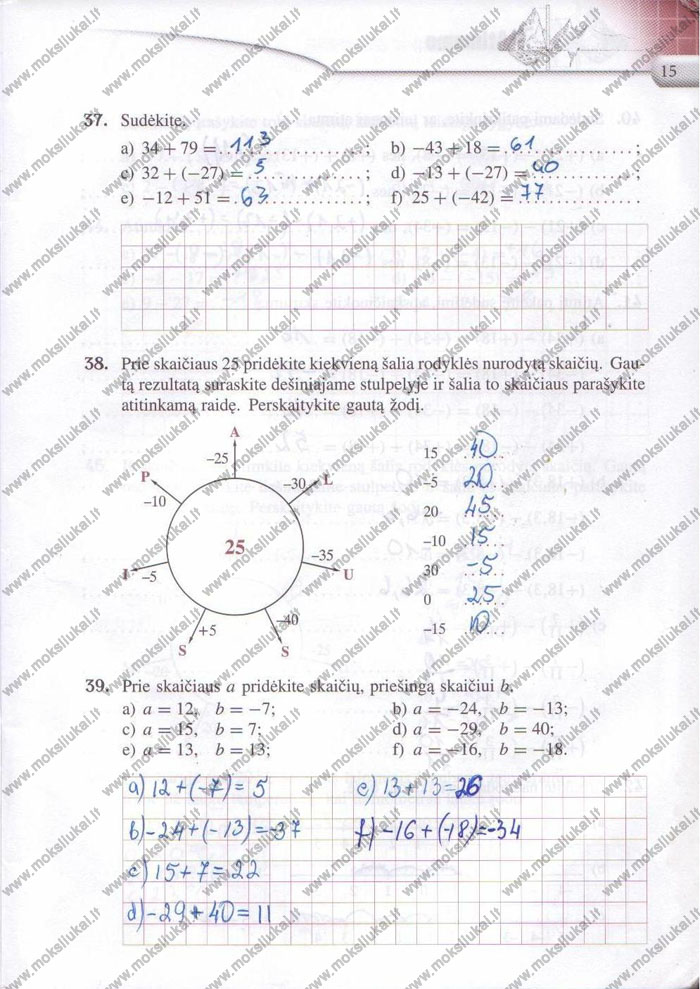 15
37. Sudėkite.
a) 34 + 79 = 113 ; b) −43 + 18 = 61 ;
c) 32 + (−27) = 5 ; d) −13 + (−27) = 40 ;
e) −12 + 51 = 63 ; f) 25 + (−42) = 77
38. Prie skaičiaus 25 pridėkite kiekvieną šalia rodyklės nurodytą skaičių. Gau-
tą rezultatą suraskite dešiniajame stulpelyje ir šalia to skaičiaus parašykite
atitinkamą raidę. Perskaitykite gautą žodį.
A
−25
P
−10
−30 L
25
−35
U
I
−5
+5
−40
S
S
15 40
−5 20
20 45
−10 15
30 −5
0 25
−15 10
39. Prie skaičiaus a pridėkite skaičių, priešingą skaičiui b.
a) a = 12, b = −7; b) a = −24, b = −13;
c) a = 15, b = 7; d) a = −29, b = 40;
e) a = 13, b = 13; f) a = −16, b = −18.
a) 12 + (−7) = 5 e) 13 + 13 = 26
b) −24 + (−13) = −37 f) −16 + (−18) = −34
c) 15 + 7 = 22
d) −29 + 40 = 11
www.moksliukai.lt